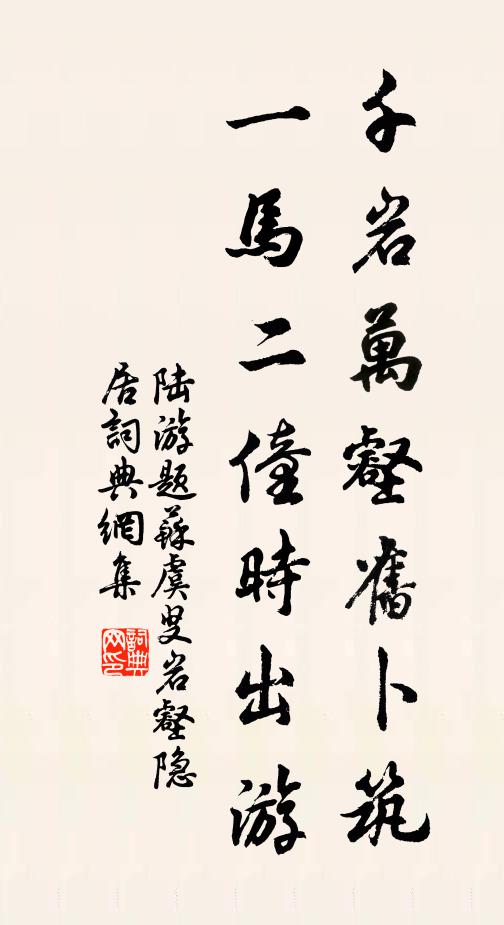 千岩萬壑舊卜筑
一馬二僮時出游
陆游题蘇虞叟岩壑隐
居詞典網集
詞典网印